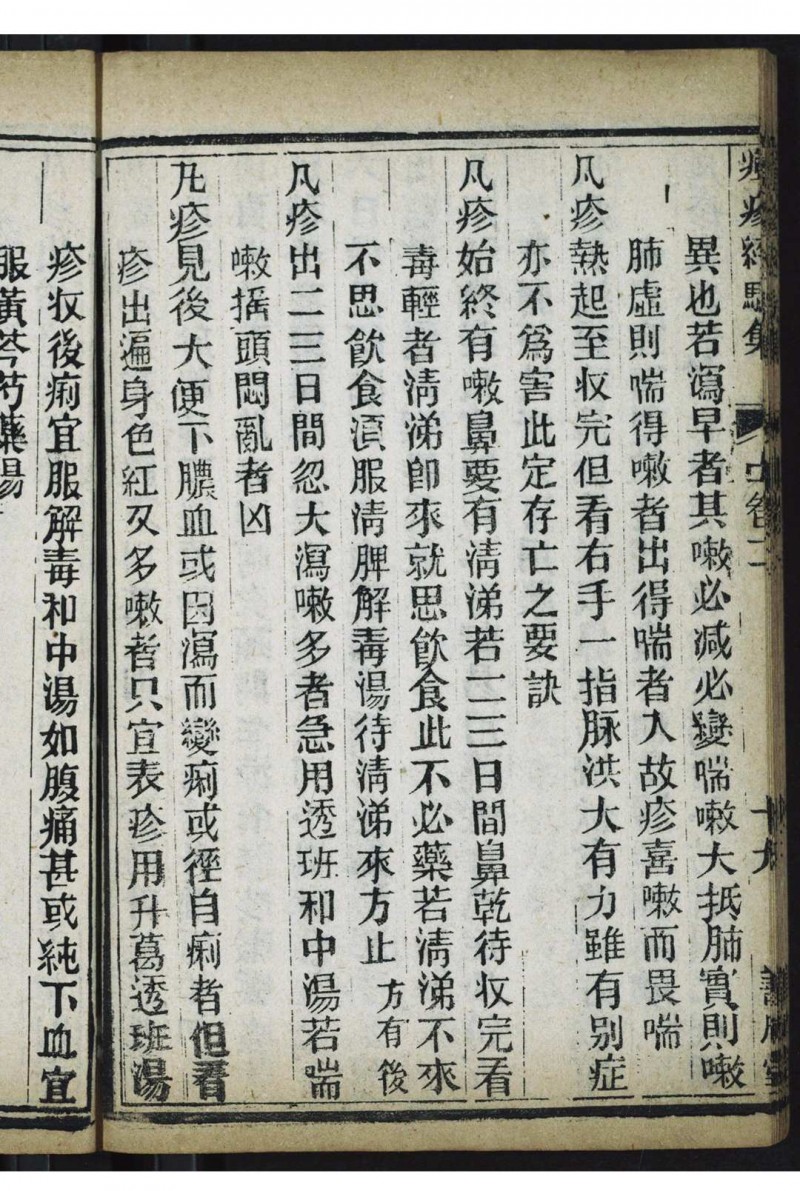 疹經驗集 卷二 十九
異也若瀉早者其嗽必减必變喘嗽大抵肺實則嗽
肺虛則喘得嗽者出得喘者入故疹喜嗽而畏喘
凡疹熱起至收完但看右手一指脉洪大有力雖有别症
亦不爲害此定存亡之要訣
凡疹始終有嗽鼻要有淸涕若一二三日間鼻乾待收完看
毒輕者淸涕卽來就思飮食此不必藥若淸涕不來
不思飮食須服淸脾解毒湯待淸涕來方止 方有後
凡疹出二三日間忽大瀉嗽多者急用透班和中湯若喘
嗽揺頭悶亂者凶
凡疹見後大便下膿血或因瀉而變痢或徑自痢者但看
疹出遍身色紅又多嗽者只宜表疹用升葛透班湯
疹收後痢宜服解毒和中湯如腹痛甚或純下血宜
服黃芩芍藥湯